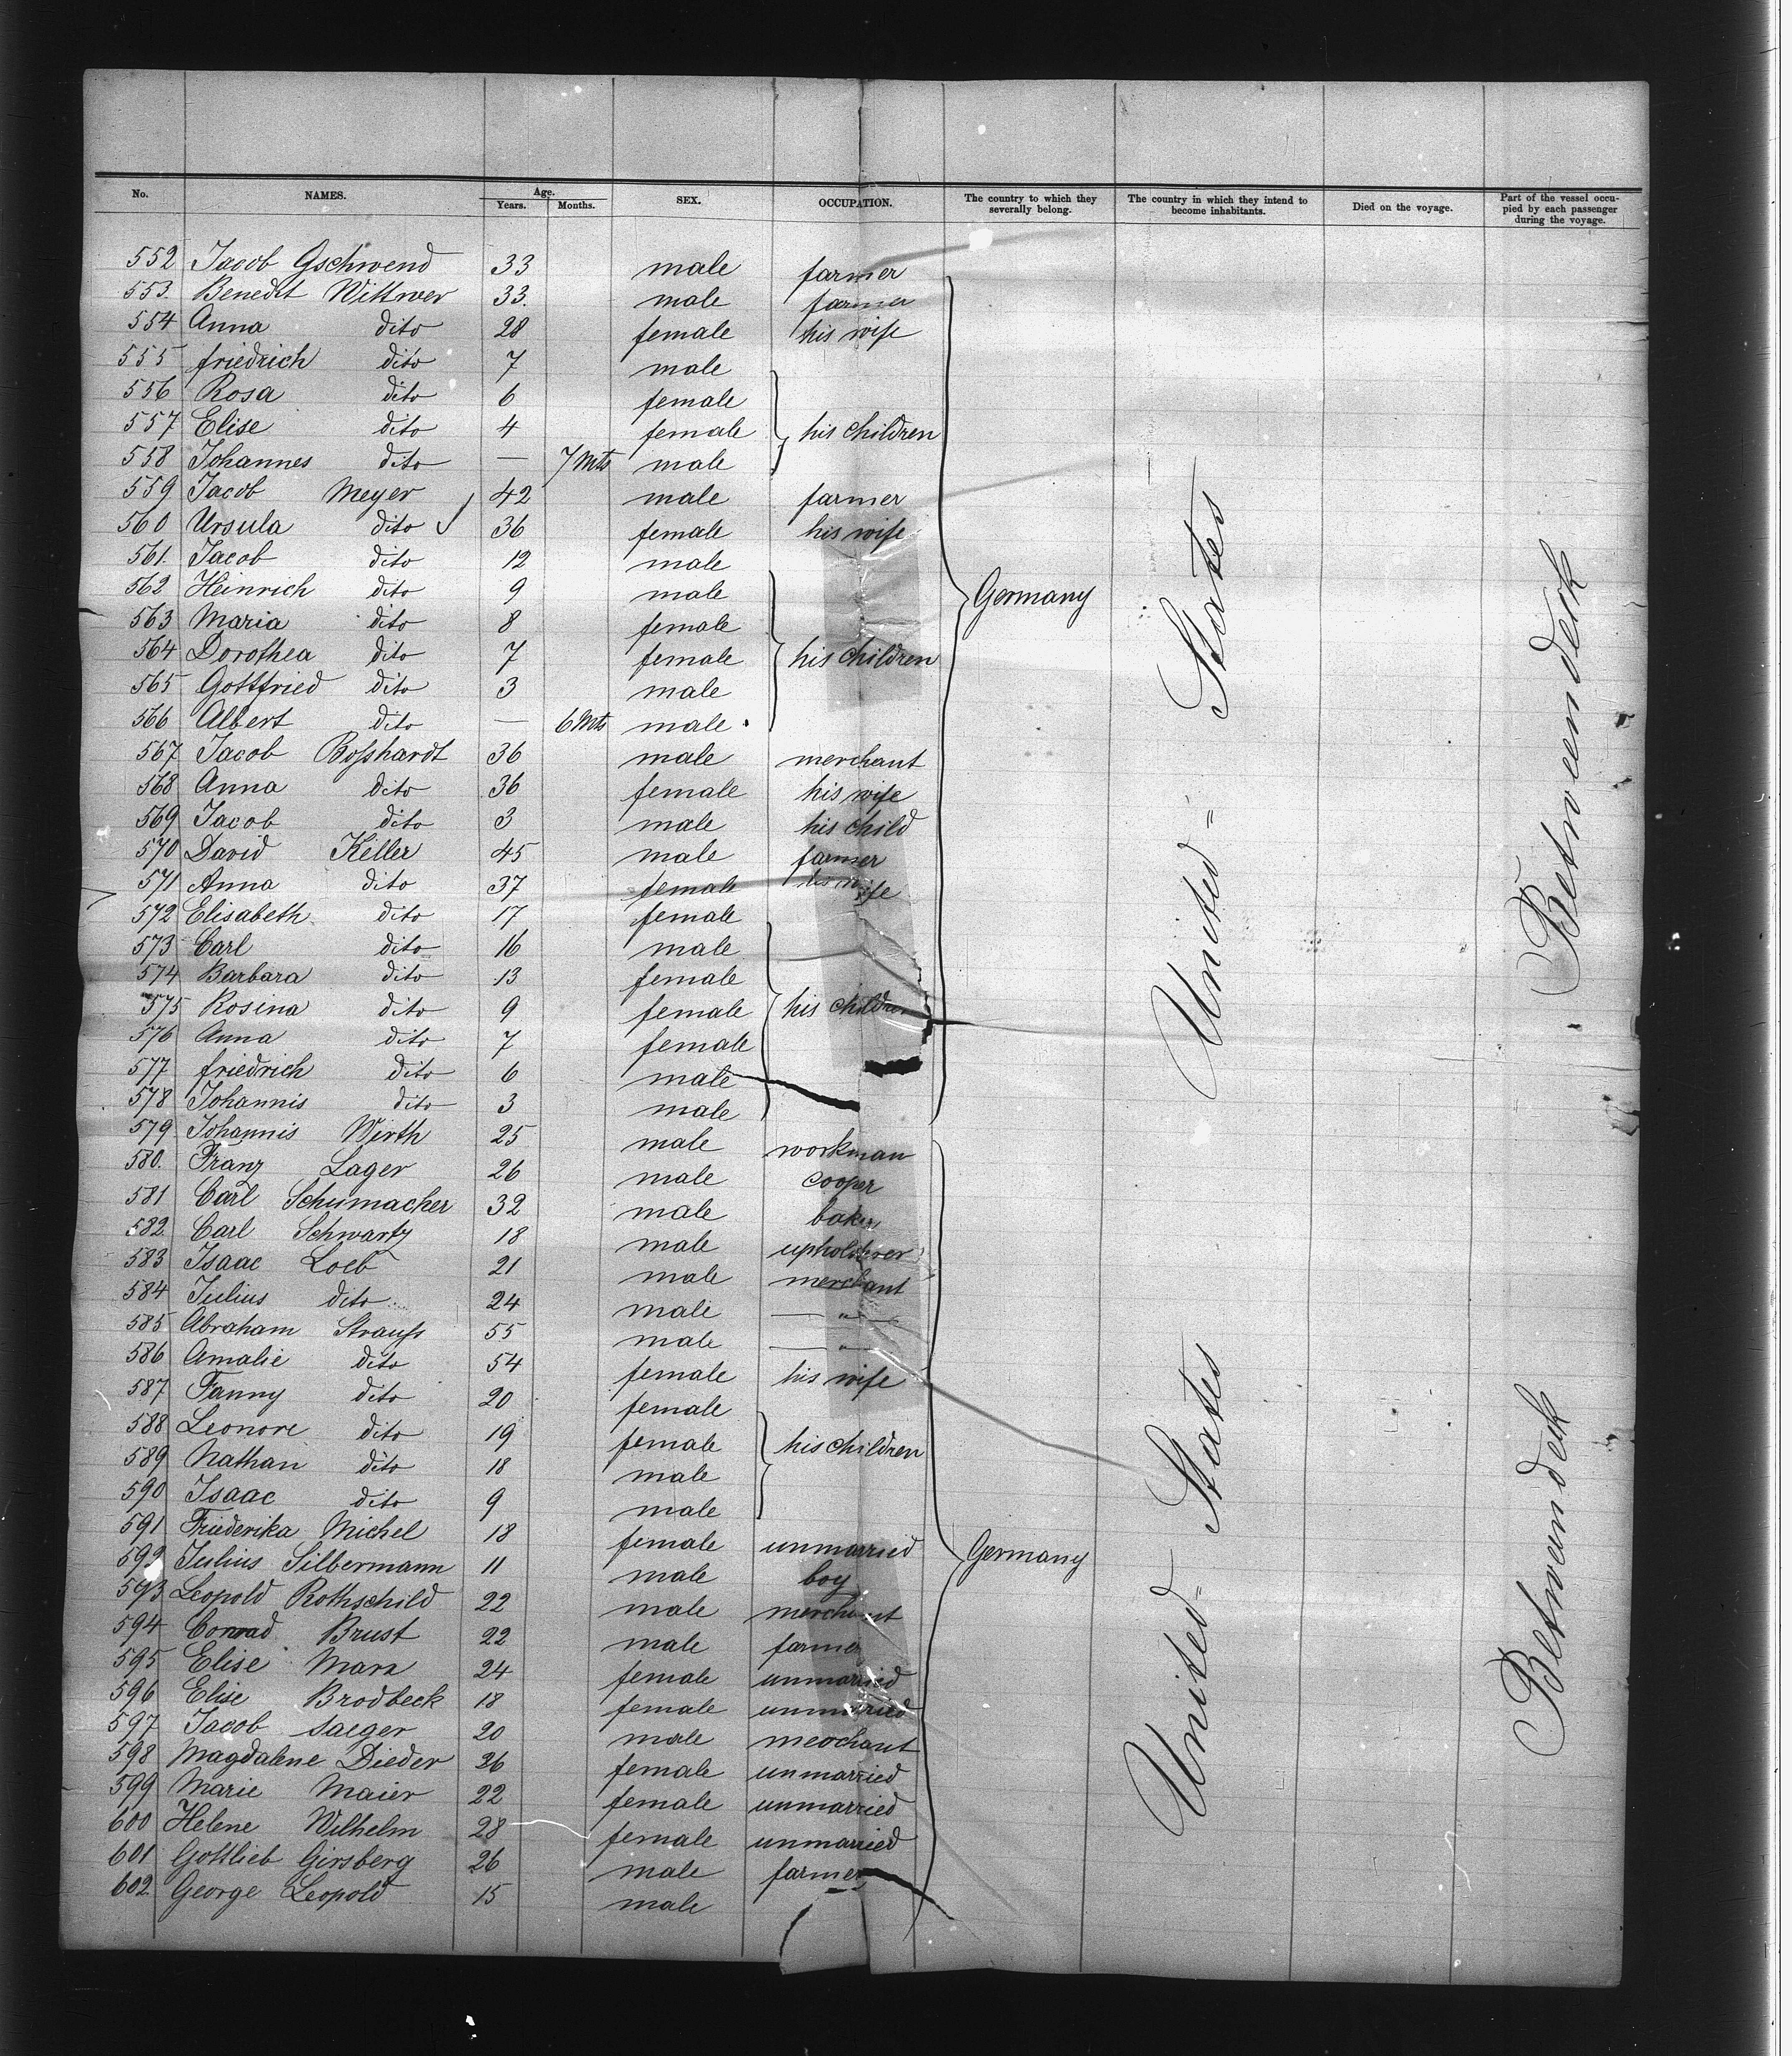 No. NAMES. Age. Years. Months. SEX. OCCUPATION. The country to which they severally belong. The country in which they intend to become inhabitants. Died on the voyage. Part of the vessel occupied by each passenger during the voyage.
552 Jacob Gschwend 33 male farmer
553. Benedct Wittwer 33. male farmer
554 Anna dito 28 female his wife
555 friedrich dito 7 male
556 Rosa dito 6 female
557 Elise dito 4 female his children
558 Johannes dito — 7 Mts male
559 Jacob Meyer 42 male farmer
560 Ursula dito 36 female his wife
561. Jacob dito 12 male
562 Heinrich dito 9 male Germany
563 Maria dito 8 female
564 Dorothea dito 7 female his children
565 Gottfried dito 3 male
566 Albert dito — 6 Mts male
567 Jacob Boſshardt 36 male merchant
568 Anna dito 36 female his wife
569 Jacob dito 3 male his child
570 David Keller 45 male farmer
571 Anna dito 37 female his wife
572 Elisabeth dito 17 female
573 Carl dito 16 male
574 Barbara dito 13 female
575 Rosina dito 9 female his children
576 Anna dito 7 female
577 friedrich dito 6 male
578 Johannis dito 3 male
United = States
Betweendeck
579 Johannis Werth 25 male workman
580. Franz Lager 26 male cooper
581 Carl Schumacher 32 male baker
582 Carl Schwartz 18 male upholdrer
583 Isaac Loeb 21 male merchant
584 Julius dito 24 male — " —
585 Abraham Strauſs 55 male — " —
586 Amalie dito 54 female his wife
587 Fanny dito 20 female
588 Leonore dito 19 female his children
589 Nathan dito 18 male
590 Isaac dito 9 male
591 Friederika Michel 18 female unmarried Germany
592 Julius Silbermann 11 male boy
593 Leopold Rothschild 22 male merchant
594 Conrad Brust 22 male farmer
595 Elise Marx 24 female unmarried
596 Elise Brodbeck 18 female unmarried
597 Jacob Saeger 20 male meochant
598 Magdalene Dieder 26 female unmarried
599 Marie Maier 22 female unmarried
600 Helene Wilhelm 28 female unmarried
601 Gottlieb Girsberg 26 male farmer
602 George Leopold 15 male
United = States
Betweendek